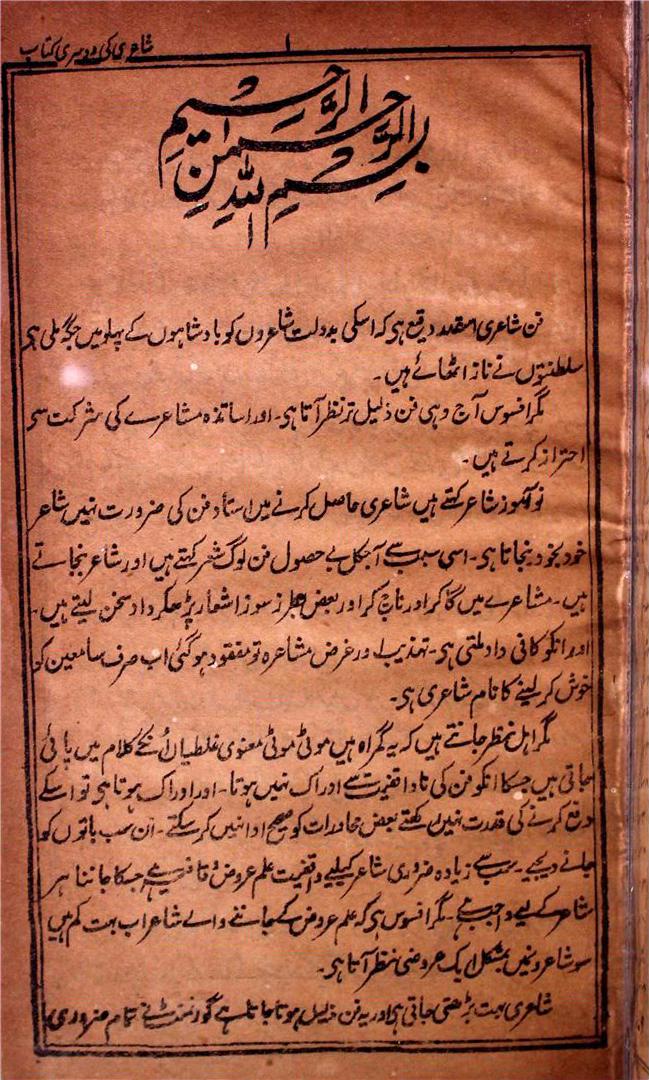 شاعری کی دوسری کتاب
۱
بِسْمِ اللّٰهِ الرَّحْمٰنِ الرَّحِيْمِ
فن شاعری اسقدر وقیع ہی کہ اسکی بدولت شاعروں کو بادشاہوں کے پہلو میں جگہ ملی ہی
سلطنتوں نے ناز اٹھائے ہیں۔
مگر افسوس آج وہی فن ذلیل تر نظر آتا ہی۔ اور اساتذہ مشاعرے کی شرکت سی
احتراز کرتے ہیں۔
نو آموز شاعر کہتے ہیں شاعری حاصل کرنے میں استاد فن کی ضرورت نہیں شاعر
خود بخود بنجاتا ہی۔ اسی سبب سے آجکل بے حصول فن لوگ شعر کہتے ہیں اور شاعر بنجاتے
ہیں۔ مشاعرے میں گا کر اور ناچ کر اور بعض بطرز سوز اشعار پڑھکر داد سخن لیتے ہیں۔
اور انکو کافی داد ملتی ہی۔ تہذیب اور غرض مشاعرہ تو مفقود ہو گئی اب صرف سامعین کو
خوش کر لینے کا نام شاعری ہی۔
مگر اہل نظر جانتے ہیں کہ یہ گمراہ ہیں موٹی موٹی معنوی غلطیاں اُنکے کلام میں پائی
جاتی ہیں جسکا انکو فن کی ناواقفیت سے ادراک نہیں ہوتا۔ اور ادراک ہوتا ہی تو اسکے
دفع کرنے کی قدرت نہیں رکھتے بعض محاورات کو صحیح ادا نہیں کر سکتے۔ ان سب باتوں کو
جانے دیجیے۔ سب سے زیادہ ضروری شاعر کیلیے واقفیت علم عروض و قافیہ ہے جسکا جاننا ہر
شاعر کے لیے واجب ہے۔ مگر افسوس ہی کہ علم عروض کے جاننے والے شاعر اب بہت کم ہیں
سو شاعروں میں بمشکل ایک عروضی نظر آتا ہی۔
شاعری بہت بڑھتی جاتی ہی اور یہ فن ذلیل ہوتا جاتا ہے گورنمنٹ نے تمام ضروری